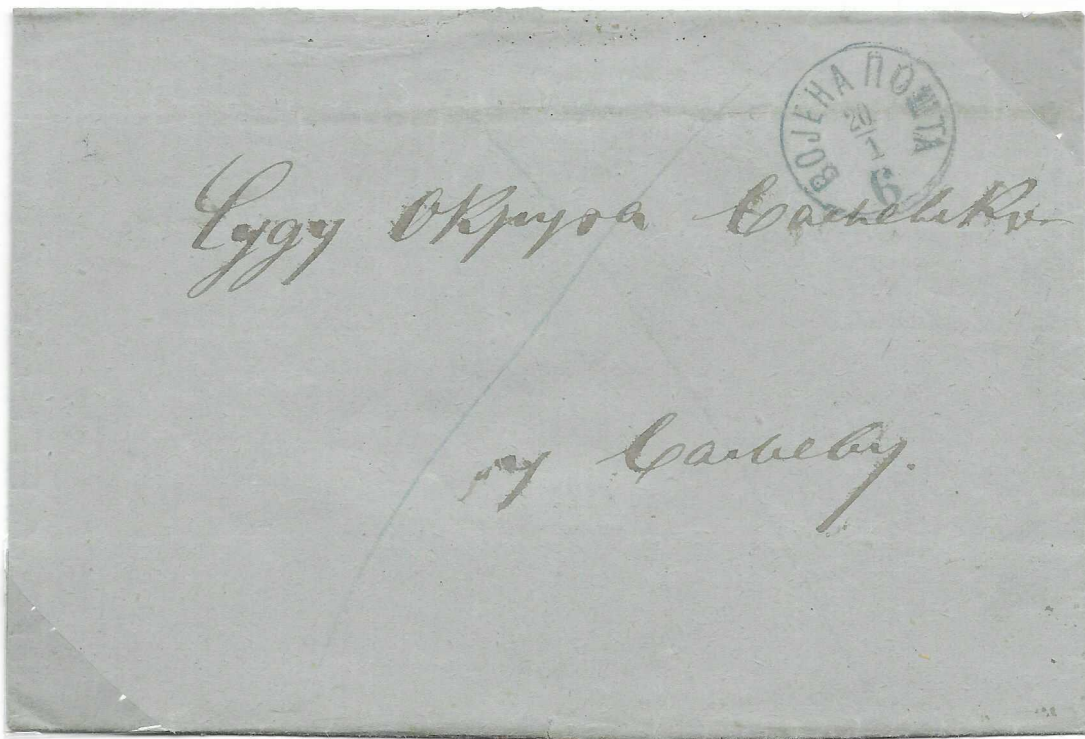 ВОЈЕНА ПОШТА
6
Суду Округа Ваљевског
у Ваљеву.